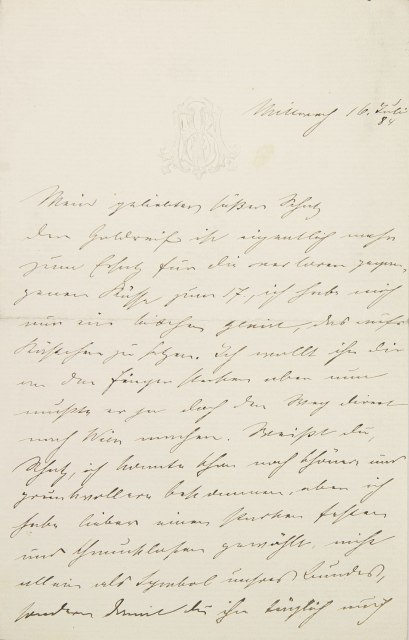 Mittwoch 16. Juli
84
Mein geliebter, süßer Schatz
Der Goldreif ist eigentlich mehr
zum Ersatz für die verloren gegan-
genen Küsse zum 17., ich habe mich
nur ein bischen geirrt, das aufs
Kästchen zu setzen. Ich wollt ihn dir
an den Finger stecken aber nun
mußte er ja doch den Weg direct
nach Wien machen. Weißt du,
Schatz, ich konnte ihn noch schöner und
prunkvoller bekommen, aber ich
habe lieber einen starken festen
und schmucklosen gewählt, nicht
allein als Symbol unsres Bundes,
sondern damit du ihn täglich auch